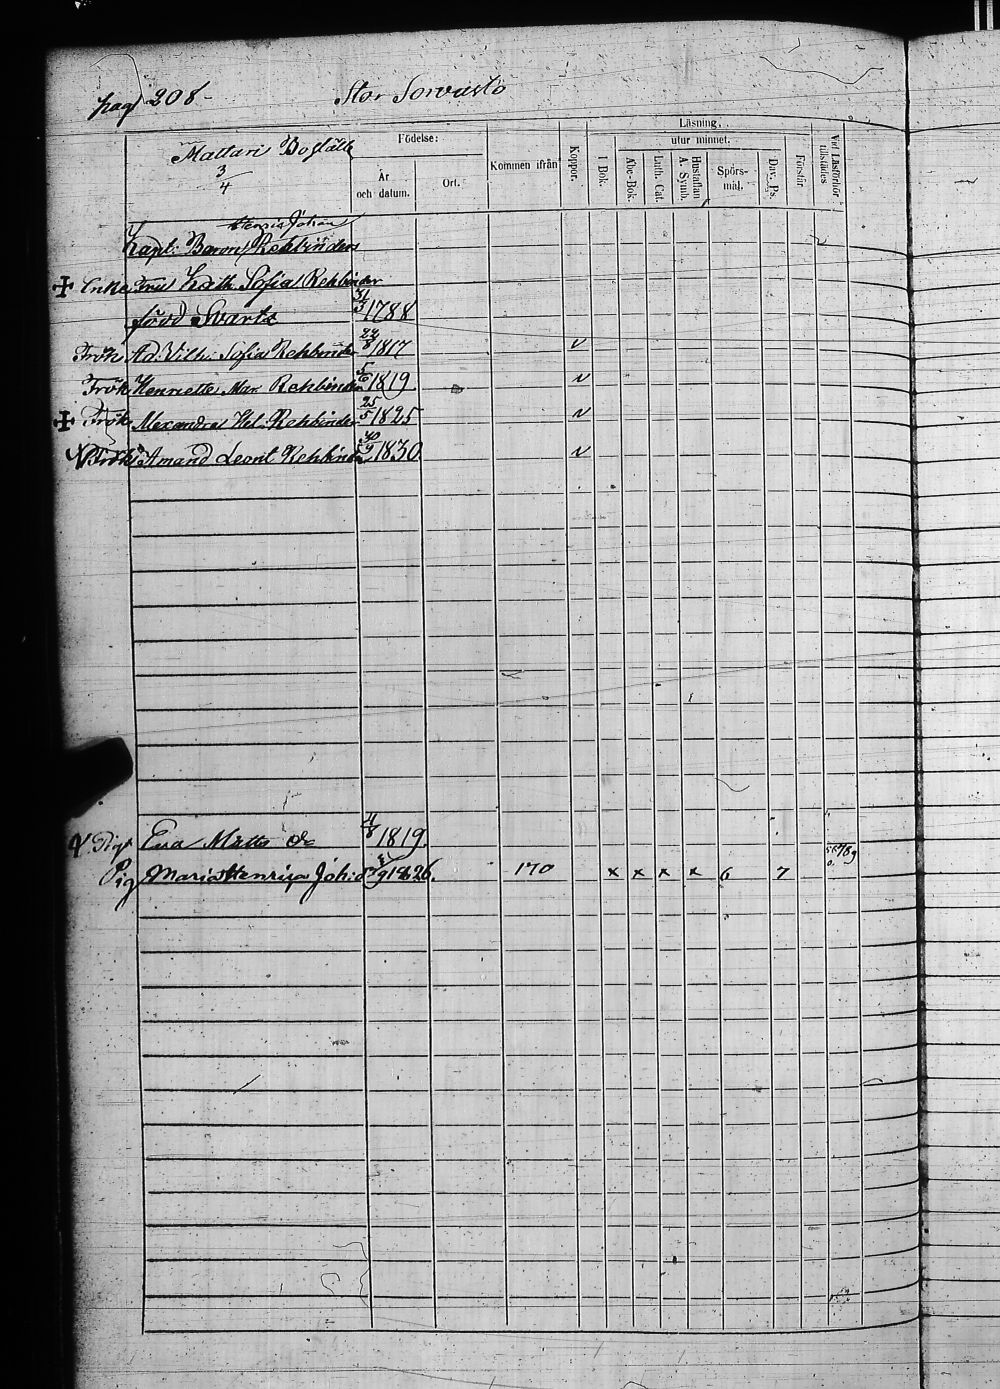 pag 208 Stor Sorvasto
Mattari Boställe
3/4
Födelse:
År och datum.
Ort.
Kommen ifrån
Koppor.
Läsning.
utur minnet.
I Bok.
Abc-Bok.
Luth. Cat.
Hustaflan A. Symb.
Spörsmål.
Dav. Ps.
Förstår.
Vid Läsförhör tillstädes
Henric Johan
Kapt. Baron Rehbinders
Enke Kath. Sofia Rehbinder
född Svartz 31/3 1788
Frök Ad. Vilh. Sofia Rehbinder 24/8 1817 v
Frök Henriette Mar. Rehbinder 5/6 1819 v
Frök Alexandra Hel. Rehbinder 25/5 1825 v
Frök Amand Leont Rehbinder 30/9 1830 v
Pig Eva Matts dr 11/8 1819.
Pig Maria Henrica Joh: d 1826. 170 x x x x 6 7